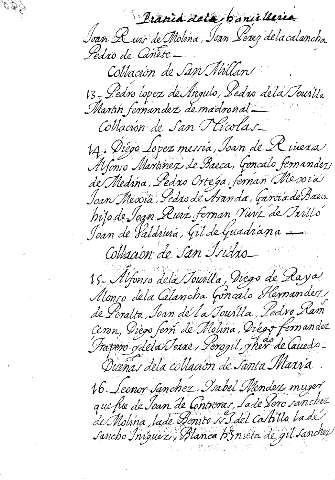 Juan Ruis de Molina, Juan Perez dela calancha
Pedro de Cañete
Collacion de San Millan
13 - Pedro lopez de Angulo, Pedro dela Tovilla
Martin fernandez de madronal
Collacion de San Nicolas
14. Diego Lopez messia, Joan de Riuera
Alfonso Martinez de Baeza, Goncalo fernandez
de Medina, Pedro Ortega, fernan Mexia
Joan Mexia, Pedro de Aranda, Garcia de Baeza
hijo de Joan Ruiz, fernan Ruiz de Trillo
Joan de Valdivia, Gil de Guadiana
Collacion de San Isidro
15. Alfonso dela Tovilla, Diego de Raya
Alonso de la Calancha Goncalo Hernandez
de Peralta, Joan de la Tovilla, Pedro Ram
Ceron, Diego fern de Molina, Diego fernandez
dela Pergil, y de
Dueñas dela collacion de Santa Maria
16. Leonor Sanchez, Isabel Mendez muger
que fue de Joan de Contreras, la de Pero Sanchez
de Molina, la de Benito del Castillo la de
Sancho Iñiguez, Blanca nieta de gil Sanchez